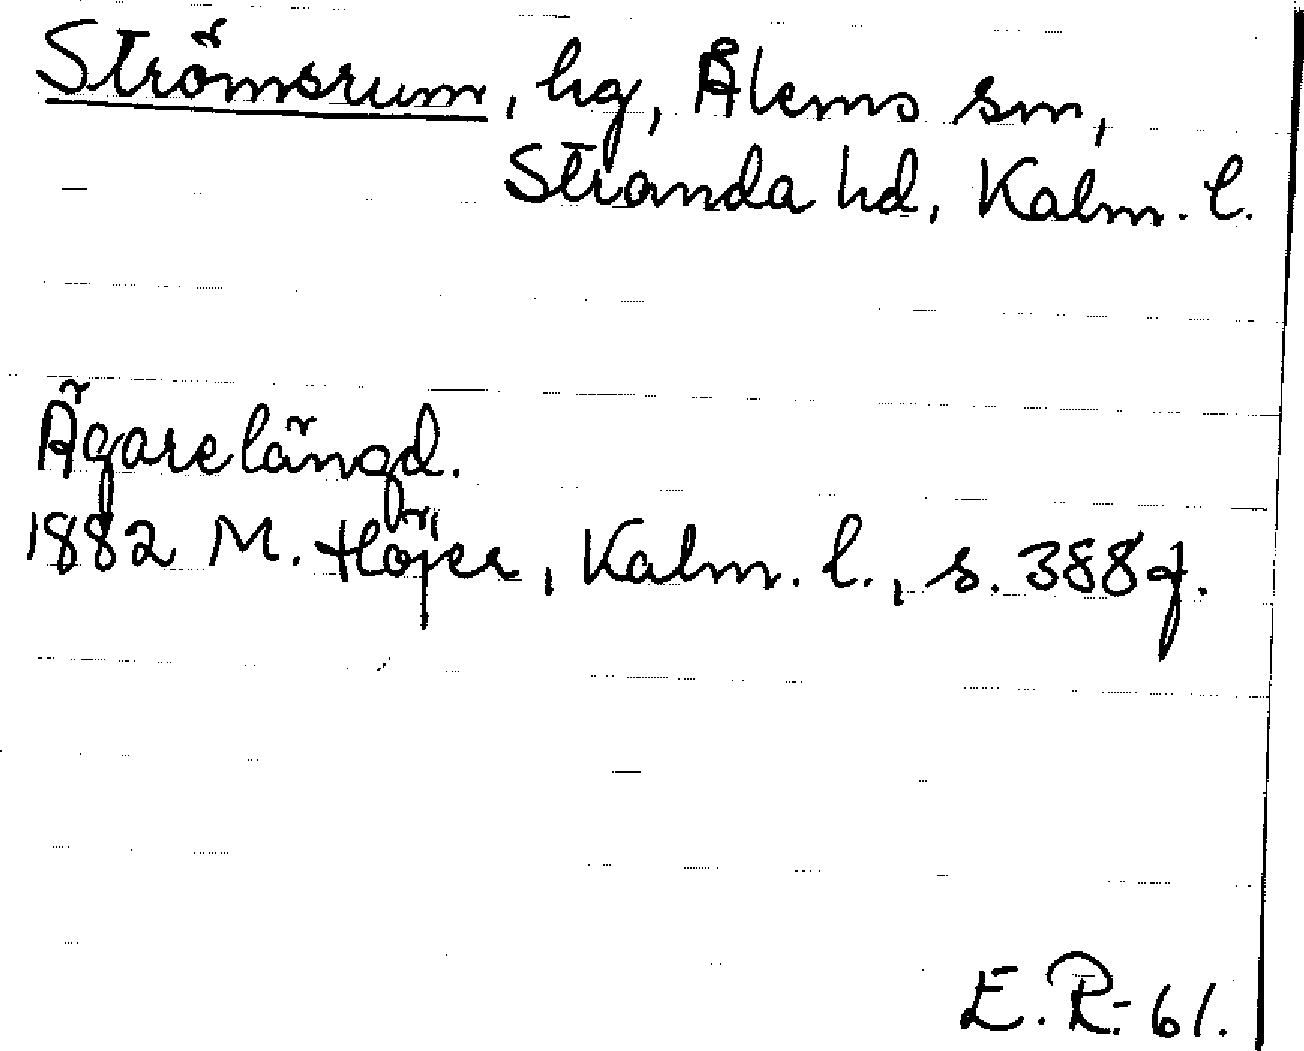 Strömsrum, hg, Ålems sn,
Stranda hd, Kalm. l.
Ägarelängd.
1882 M. Höjer, Kalm. l., s. 388 f.
E. R-61.